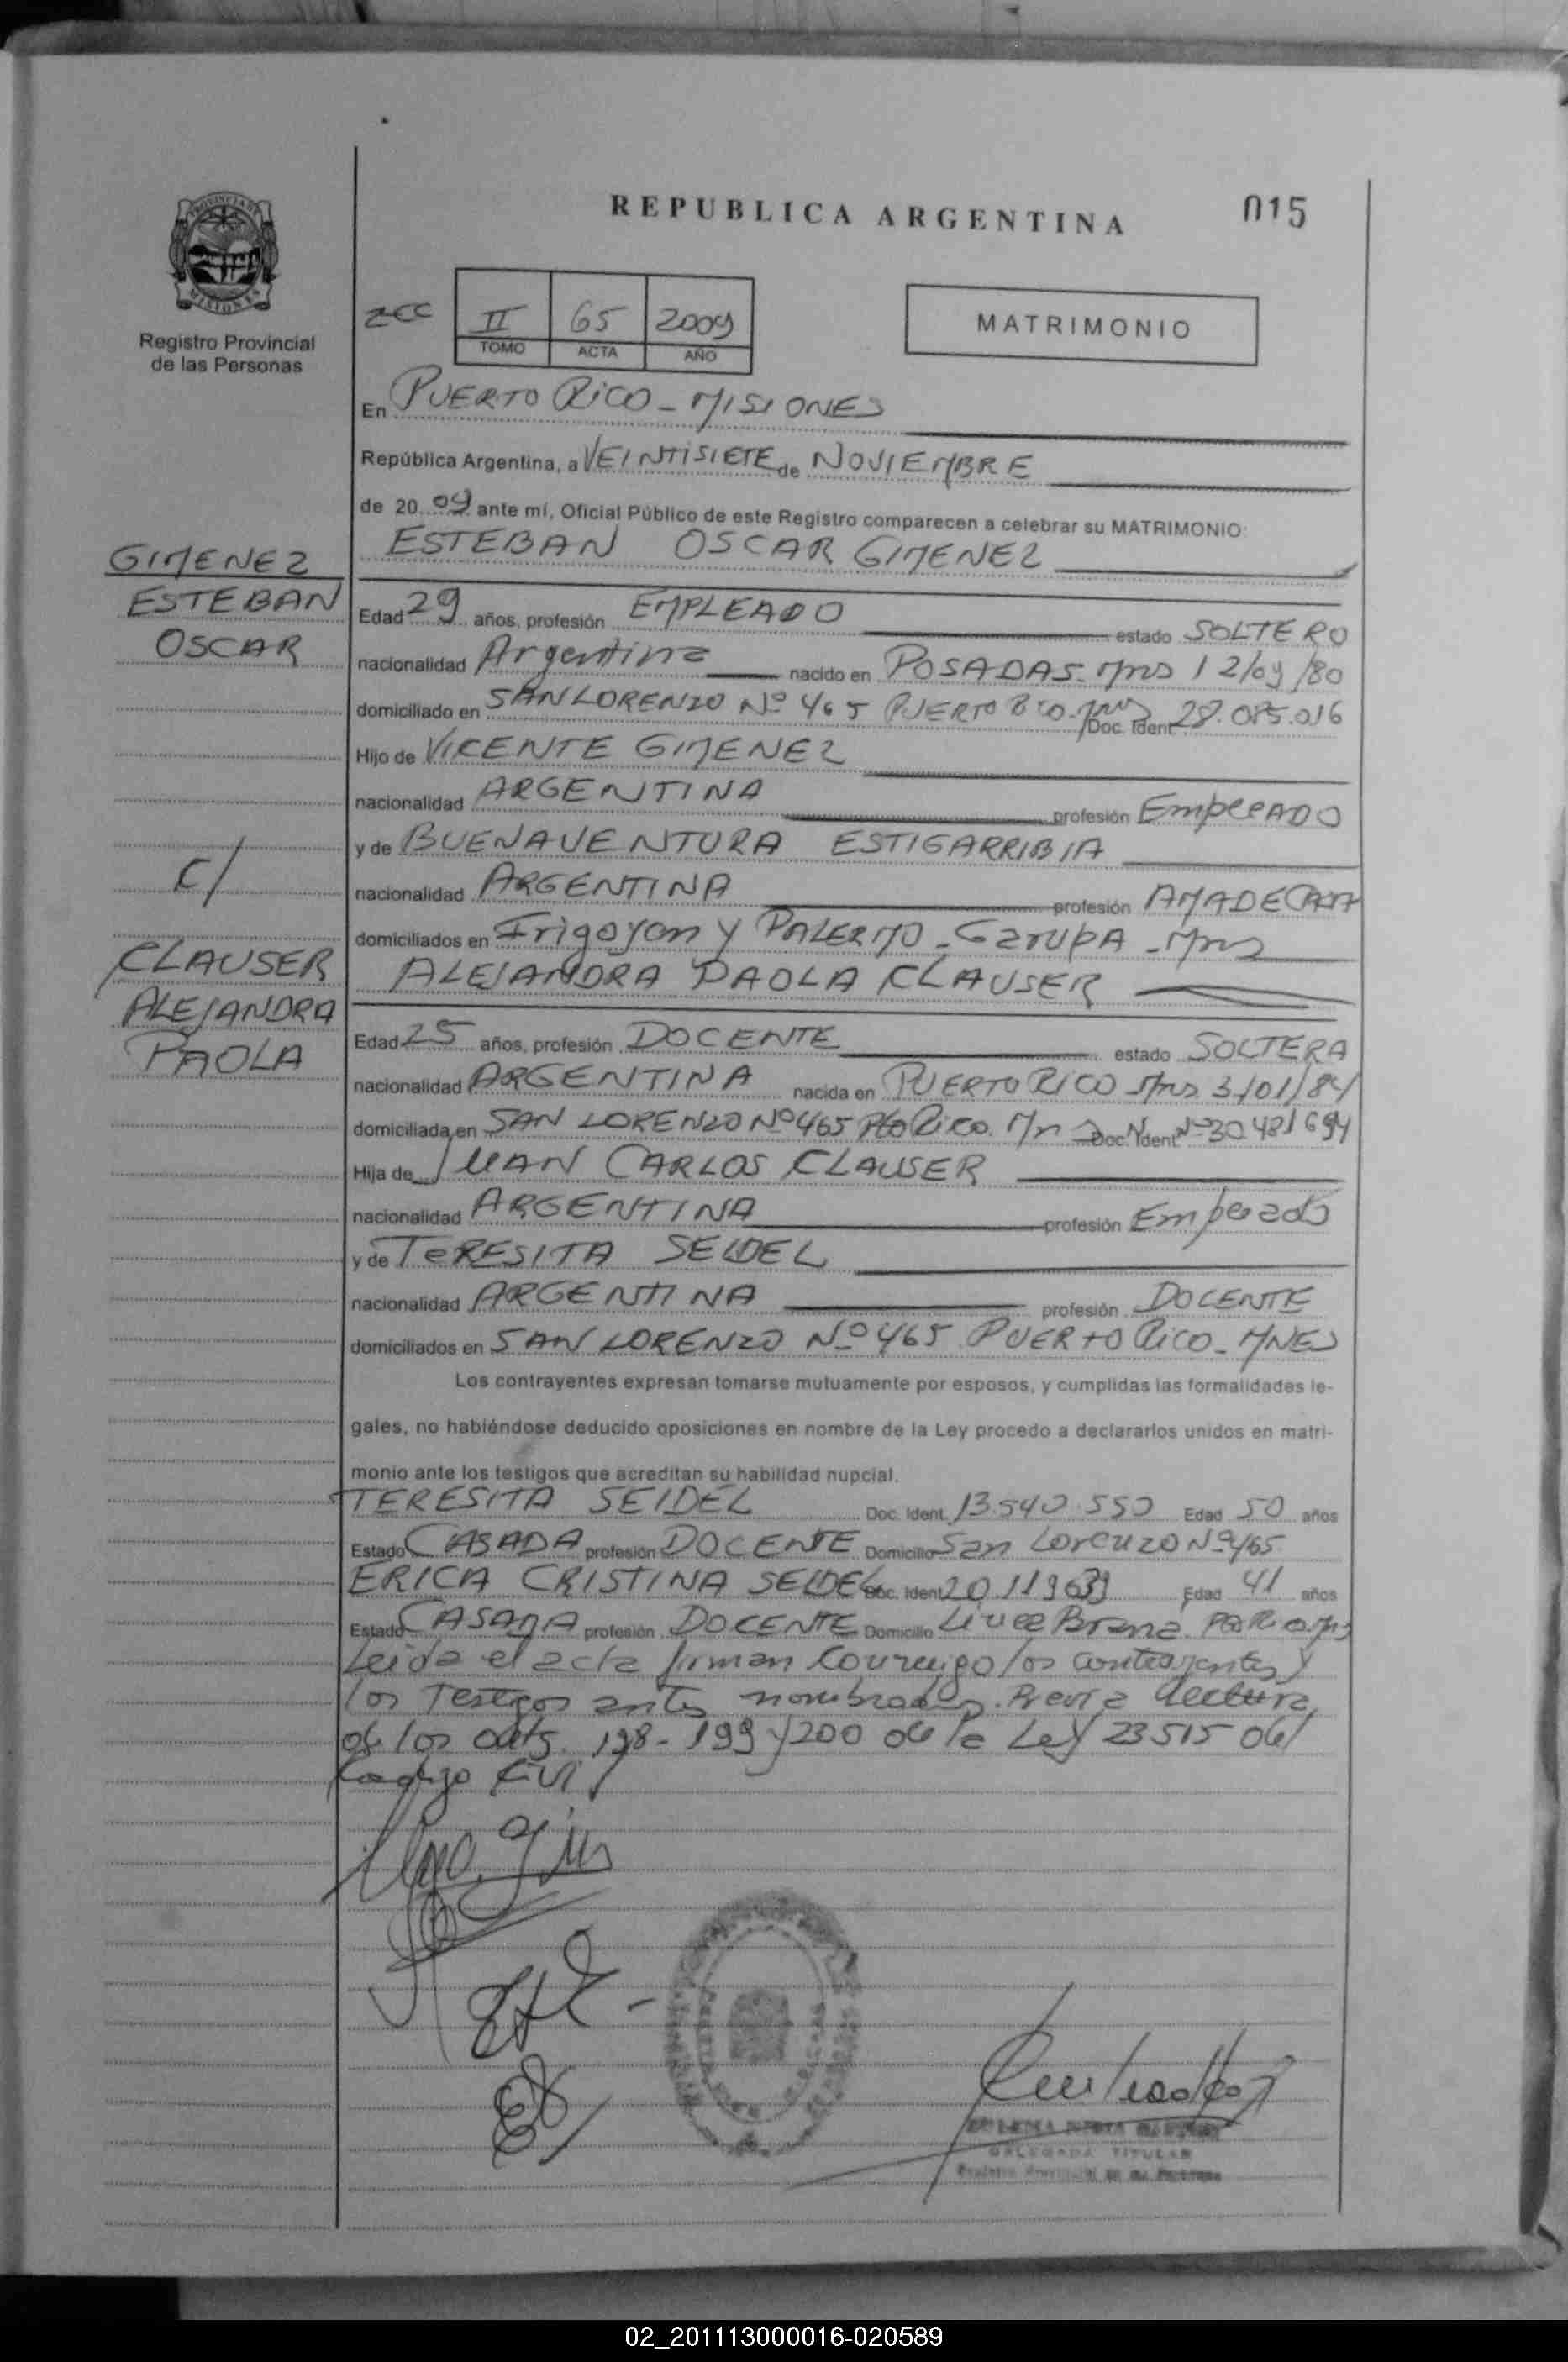 REPUBLICA ARGENTINA
015
PROVINCIA DE MISIONES
Registro Provincial
de las Personas
II 65 2009
TOMO ACTA AÑO
MATRIMONIO
En PUERTO RICO - MISIONES
República Argentina, a VEINTISIETE de NOVIEMBRE
de 20 09 ante mí, Oficial Público de este Registro comparecen a celebrar su MATRIMONIO:
GIMENEZ
ESTEBAN
OSCAR
C/
CLAUSER
ALEJANDRA
PAOLA
ESTEBAN OSCAR GIMENEZ
Edad 29 años, profesión EMPLEADO estado SOLTERO
nacionalidad Argentina nacido en POSADAS - Mns 12/09/80
domiciliado en SAN LORENZO Nº 465 PUERTO Doc. Ident. 28.085.016
Hijo de VICENTE GIMENEZ
nacionalidad ARGENTINA profesión EmpleADO
y de BUENAVENTURA ESTIGARRIBIA
nacionalidad ARGENTINA profesión
domiciliados en Irigoyen y PALERMO - Garupá - Mns
ALEJANDRA PAOLA CLAUSER
Edad 25 años, profesión DOCENTE estado SOLTERA
nacionalidad ARGENTINA nacida en PUERTO RICO Mns 3/01/84
domiciliada en SAN LORENZO Nº 465 Pto Rico. Mns Doc. Ident. Nº 30.481694
Hija de JUAN CARLOS CLAUSER
nacionalidad ARGENTINA profesión Empleado
y de TERESITA SEIDEL
nacionalidad ARGENTINA profesión DOCENTE
domiciliados en SAN LORENZO Nº 465 PUERTO RICO - MNES
Los contrayentes expresan tomarse mutuamente por esposos, y cumplidas las formalidades le-
gales, no habiéndose deducido oposiciones en nombre de la Ley procedo a declararlos unidos en matri-
monio ante los testigos que acreditan su habilidad nupcial.
TERESITA SEIDEL Doc. Ident. 13.540.550 Edad 50 años
Estado CASADA profesión DOCENTE Domicilio San Lorenzo Nº 465
ERICA CRISTINA SEIDEL Doc. Ident. Edad 41 años
Estado CASADA profesión DOCENTE Domicilio
Leída el acta firman conmigo los contrayentes y
los Testigos antes nombrados. Previa lectura
de los arts. 198 - 199 y 200 de la Ley 23515 del
Codigo Civil
DELEGADA TITULAR
02_201113000016-020589